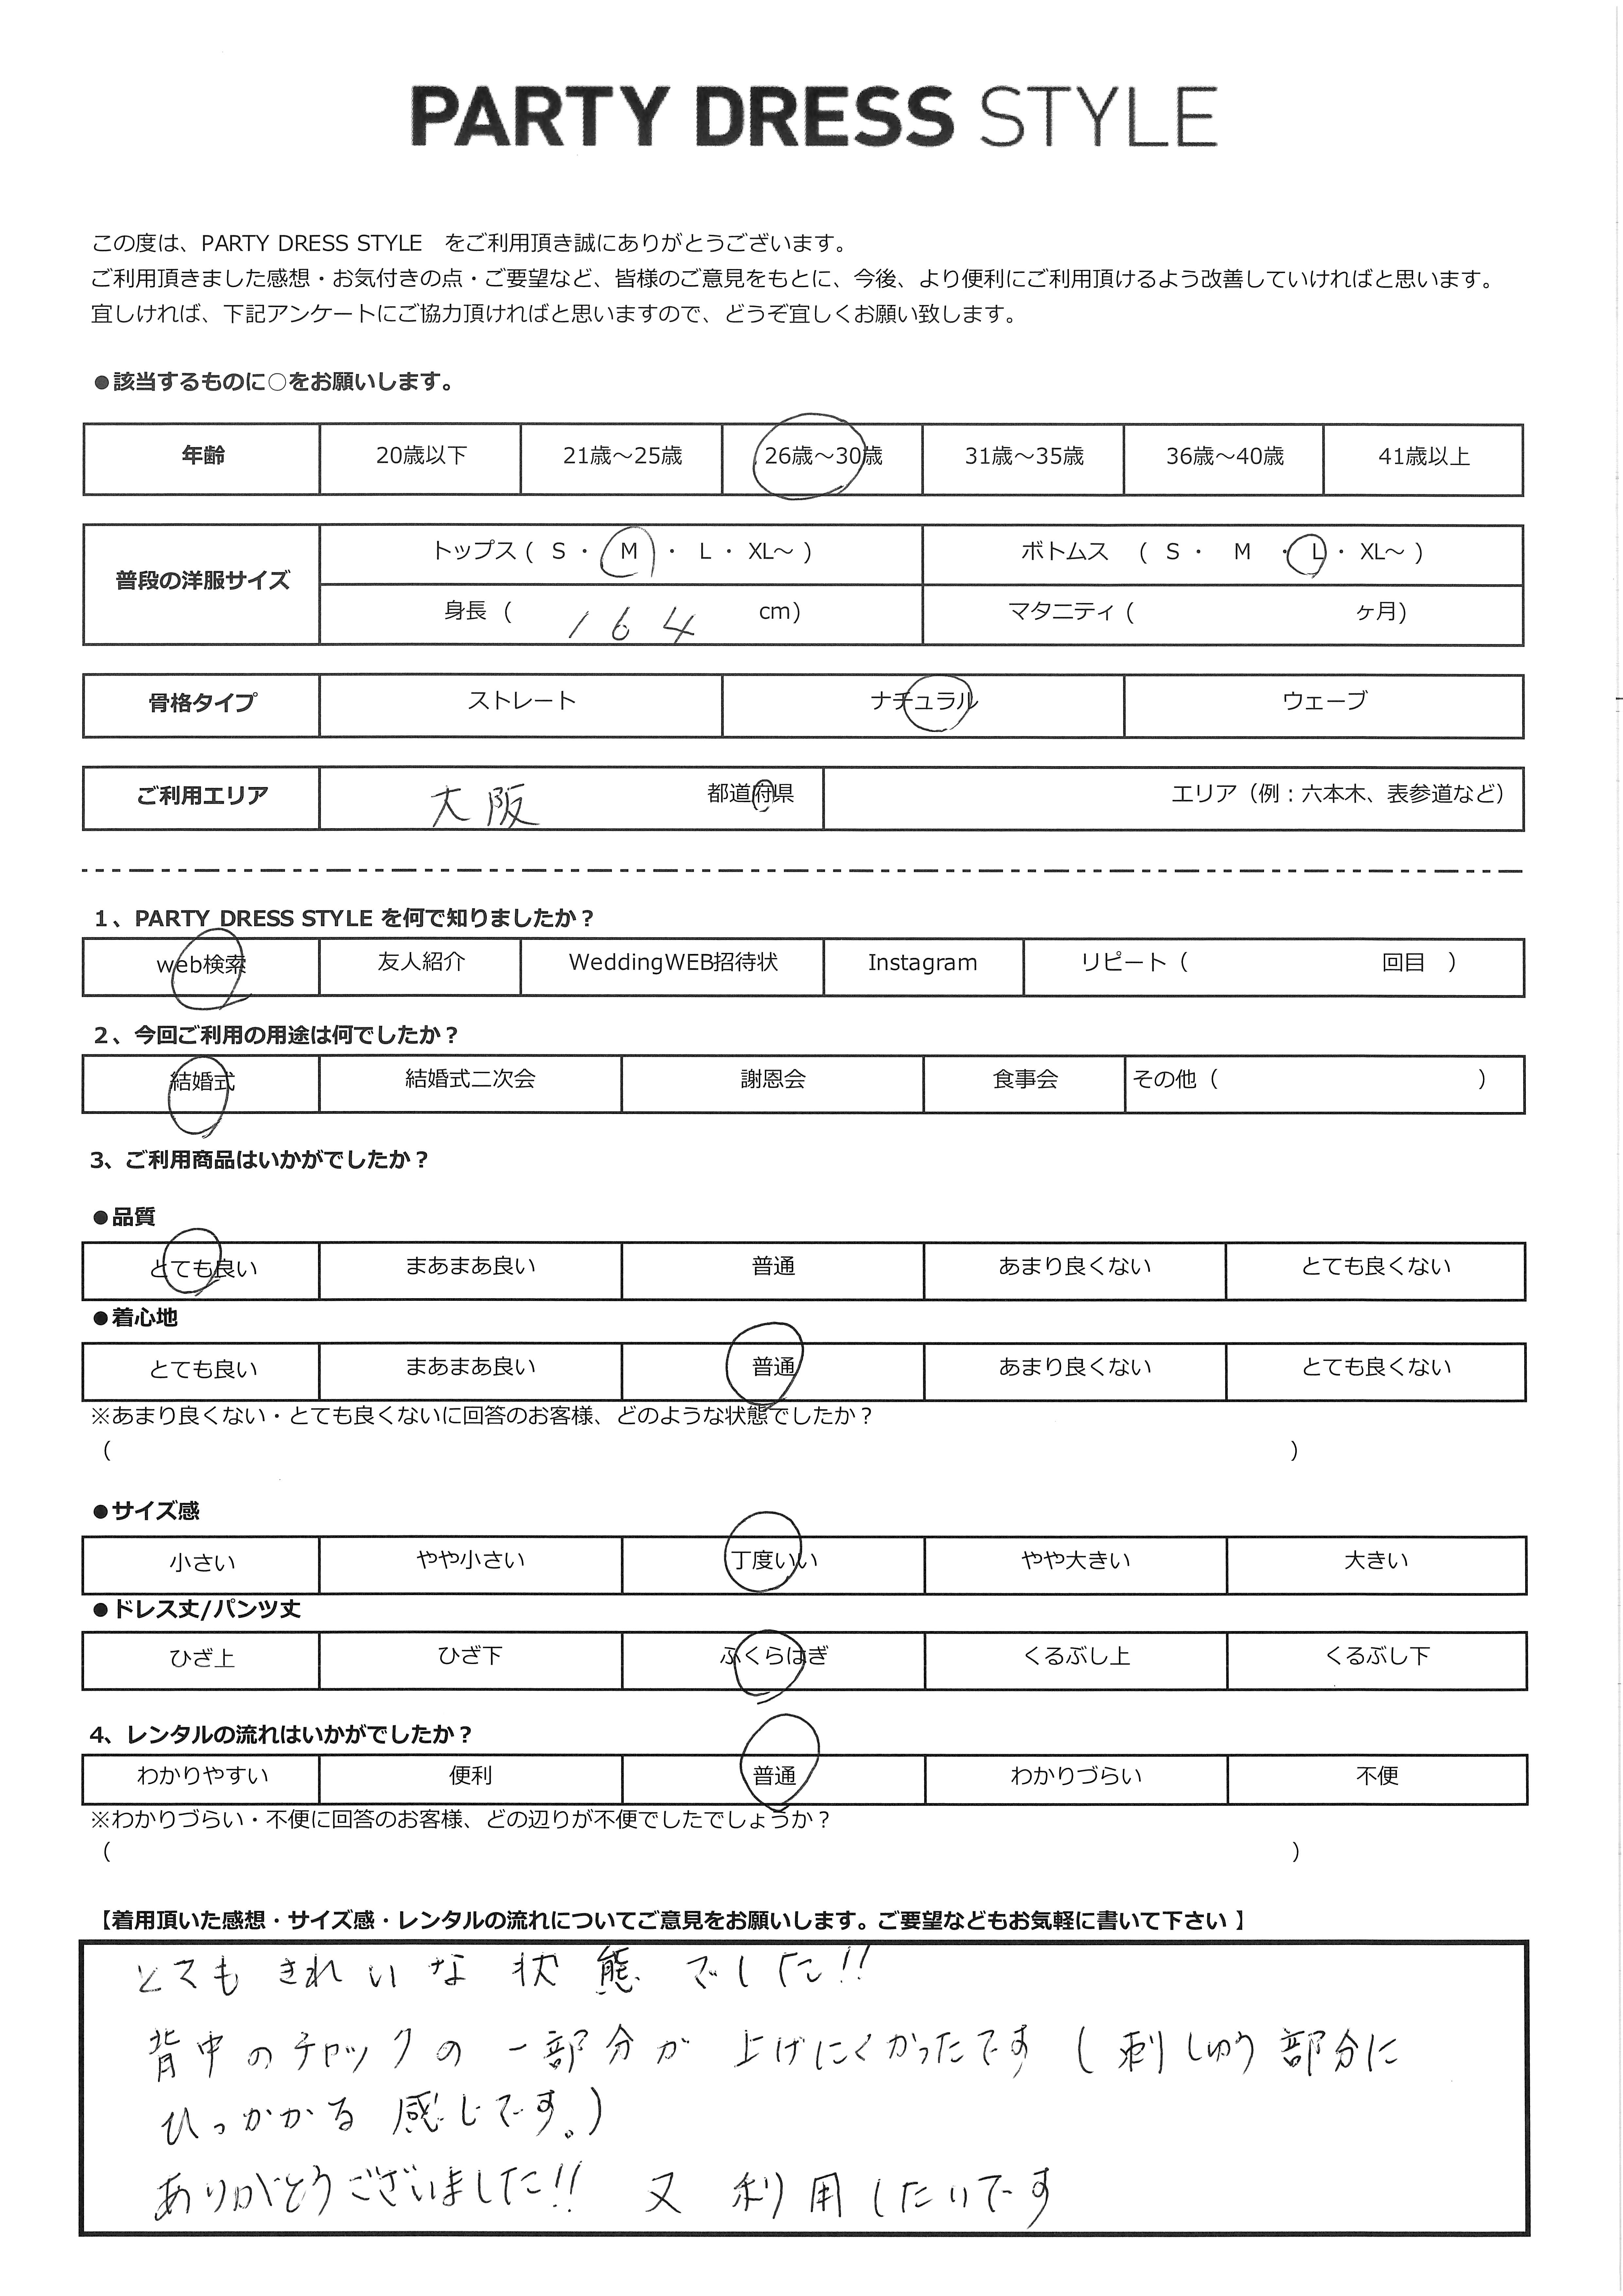 PARTY DRESS STYLE
この度は、PARTY DRESS STYLE をご利用頂き誠にありがとうございます。
ご利用頂きました感想・お気付きの点・ご要望など、皆様のご意見をもとに、今後、より便利にご利用頂けるよう改善していければと思います。
宜しければ、下記アンケートにご協力頂ければと思いますので、どうぞ宜しくお願い致します。
●該当するものに○をお願いします。
年齢 20歳以下 21歳～25歳 26歳～30歳 31歳～35歳 36歳～40歳 41歳以上
普段の洋服サイズ トップス ( S ・ M ・ L ・ XL～ ) ボトムス ( S ・ M ・ L ・ XL～ )
身長 ( 164 cm) マタニティ ( ヶ月)
骨格タイプ ストレート ナチュラル ウェーブ
ご利用エリア 大阪 都道府県 エリア（例：六本木、表参道など）
1、PARTY DRESS STYLE を何で知りましたか？
web検索 友人紹介 WeddingWEB招待状 Instagram リピート（ 回目 ）
2、今回ご利用の用途は何でしたか？
結婚式 結婚式二次会 謝恩会 食事会 その他（ ）
3、ご利用商品はいかがでしたか？
●品質
とても良い まあまあ良い 普通 あまり良くない とても良くない
●着心地
とても良い まあまあ良い 普通 あまり良くない とても良くない
※あまり良くない・とても良くないに回答のお客様、どのような状態でしたか？
（ ）
●サイズ感
小さい やや小さい 丁度いい やや大きい 大きい
●ドレス丈/パンツ丈
ひざ上 ひざ下 ふくらはぎ くるぶし上 くるぶし下
4、レンタルの流れはいかがでしたか？
わかりやすい 便利 普通 わかりづらい 不便
※わかりづらい・不便に回答のお客様、どの辺りが不便でしたでしょうか？
（ ）
【着用頂いた感想・サイズ感・レンタルの流れについてご意見をお願いします。ご要望などもお気軽に書いて下さい 】
とてもきれいな状態でした!!
背中のチャックの一部分が上げにくかったです（刺しゅう部分に
ひっかかる感じです。）
ありがとうございました!! 又利用したいです